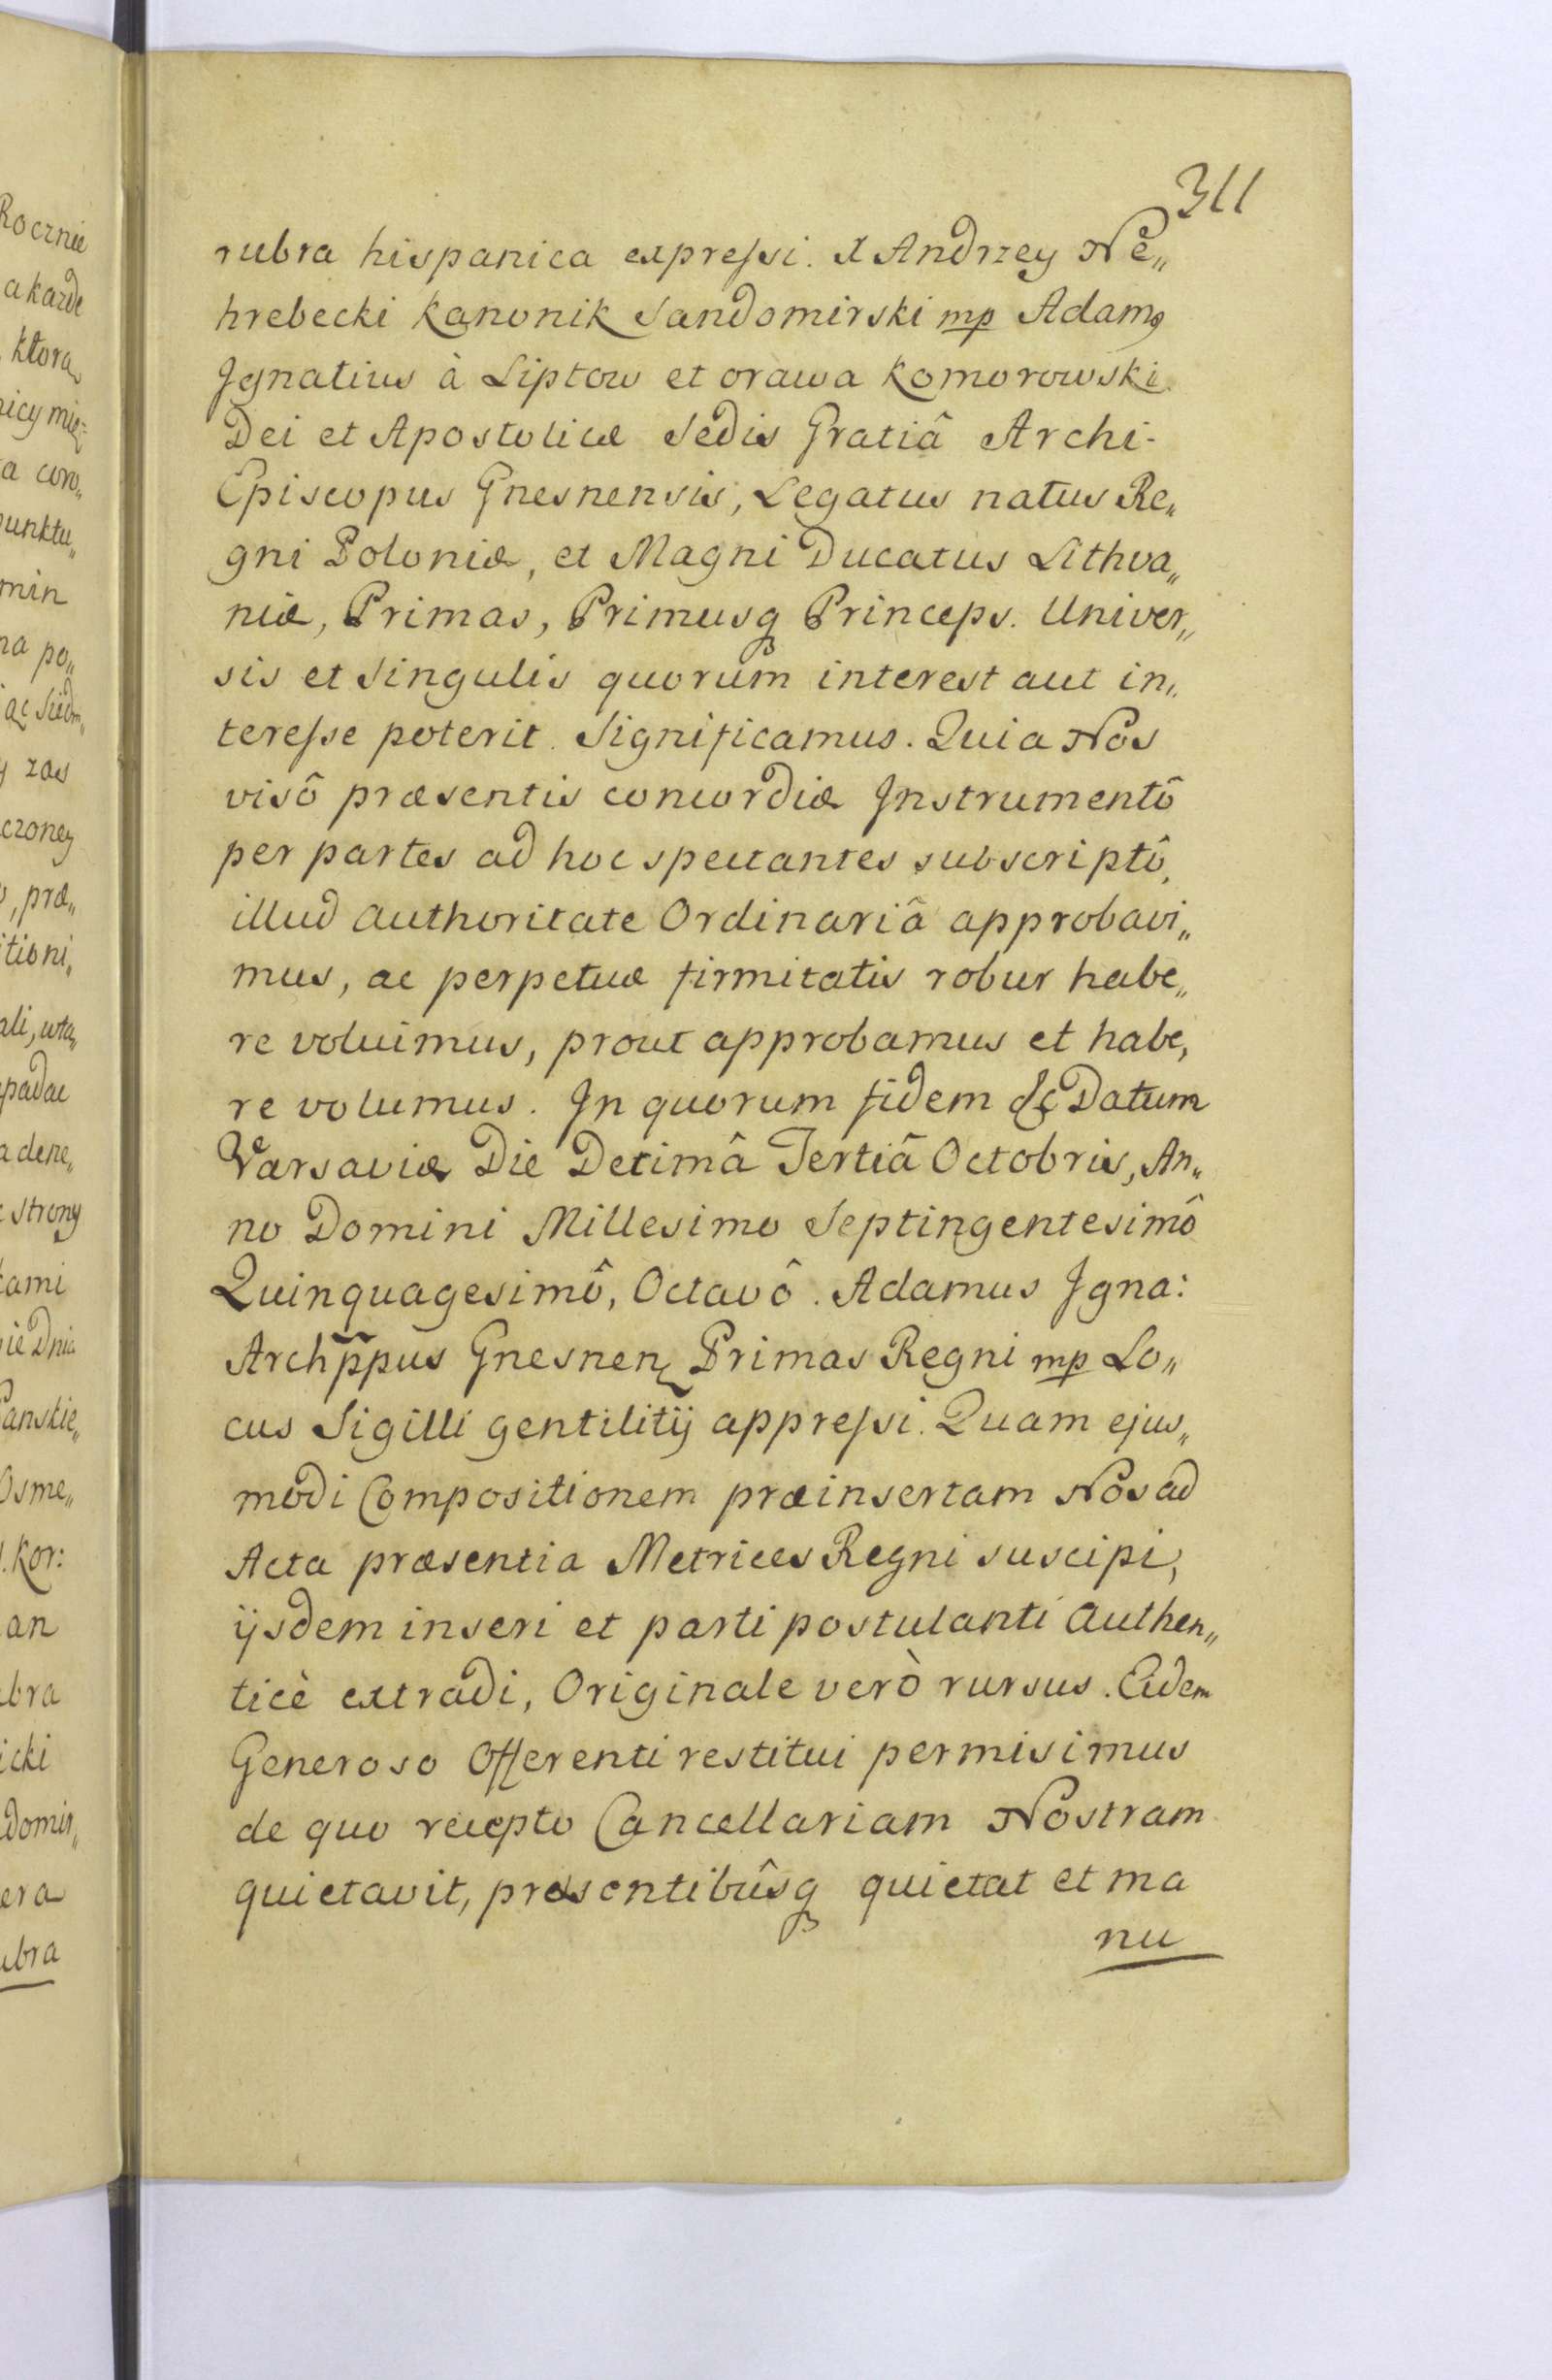 311
rubra hispanica expreſsi. X Andrzey Ne„
hrebecki Kanonik Sandomirski mp Adamꝰ
Jgnatius à Liptow et orawa Komorowski
Dei et Apostolicæ Sedis Gratiâ Archi-
Episcopus Gnesnensis, Legatus natus Re„
gni Poloniæ, et Magni Ducatus Lithva„
niæ, Primas, Primusq Princeps. Univer„
sis et Singulis quorum interest aut in„
tereſse poterit. Significamus. Quia Nos
visô præsentis concordiæ Jnstrumentô
per partes ad hoc spectantes subscriptô,
illud authoritate Ordinariâ approbavi„
mus, ac perpetuæ firmitatis robur habe„
re voluimus, prout approbamus et habe,
re volumus. Jn quorum fidem &c Datum
Varsaviæ Die Decimâ Tertiâ Octobris, An„
no Domini Millesimo Septingentesimô
Quinquagesimô, Octavô. Adamus Jgna:
Archp̃p̃us Gnesnen Primas Regni mp Lo„
cus Sigilli gentilitij appreſsi. Quam ejus„
modi Compositionem præinsertam Nos ad
Acta præsentia Metrices Regni suscipi,
ijsdem inseri et parti postulanti authen„
ticè extradi, Originale verò rursus. Eidem
Generoso Offerenti restitui permisimus
de quo recepto Cancellariam Nostram
quietavit, præsentibûsq quietat et ma
nu
Rocznie
a kazde
ktora
nicy mię
a coro„
punktu„
min
na po„
ąc Siedm„
y zas
czoney
, præ„
itioni,
ali, wta„
padac
a dene„
strony
kami
ie Dnia
Panskie„
Osme„
. Kor:
an
bra
icki
domir„
era
ubra